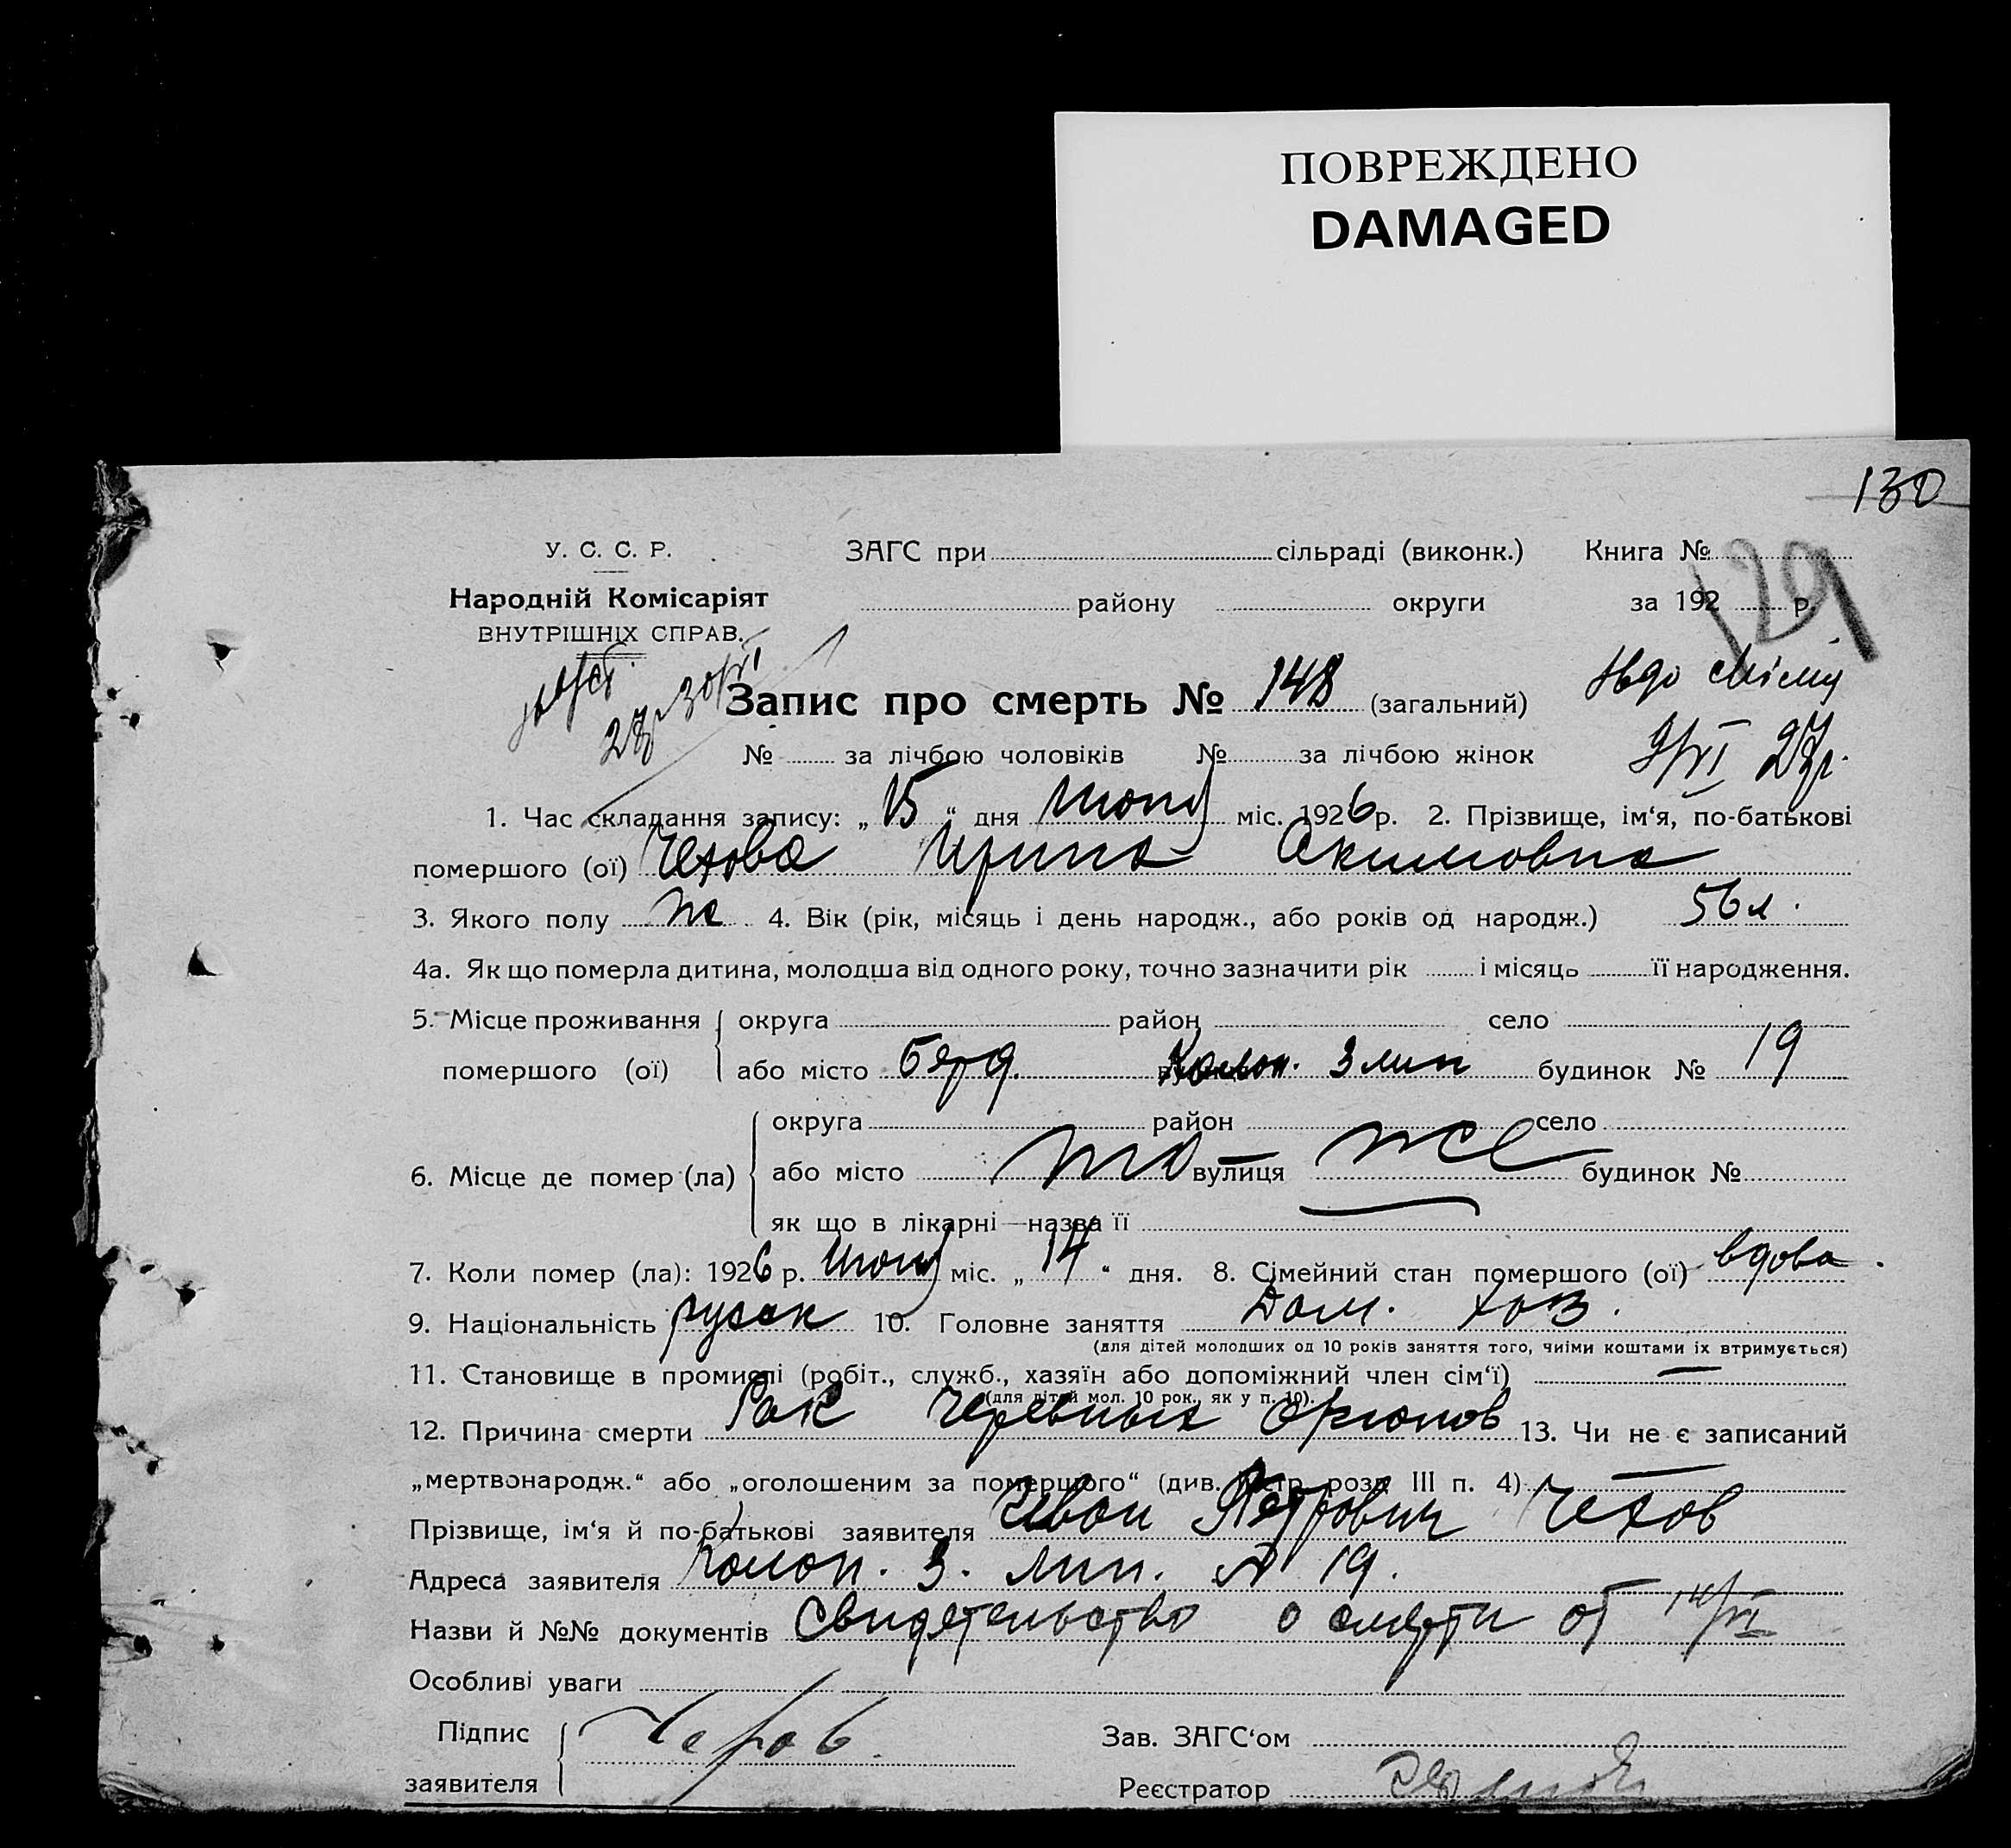 ПОВРЕЖДЕНО
DAMAGED
130
У. С. С. Р. ЗАГС при сільраді (виконк.) Книга № 129
Народній Комісаріят району округи за 192 р.
ВНУТРІШНІХ СПРАВ.
Запис про смерть № 148 (загальний)
№ за лічбою чоловіків № за лічбою жінок 9/VI 27г.
1. Час складання запису: „15“ дня июня міс. 1926 р. 2. Прізвище, ім‘я, по-батькові
помершого (ої) Чехова Ирина Акимовна
3. Якого полу ж 4. Вік (рік, місяць і день народж., або років од народж.) 56 л.
4а. Як що померла дитина, молодша від одного року, точно зазначити рік і місяць її народження.
5. Місце проживання округа район село
помершого (ої) або місто Бярд. Колон. 3 лин будинок № 19
округа район село
6. Місце де помер (ла) або місто то вулиця же будинок №
як що в лікарні—назва її
7. Коли помер (ла): 1926 р. июня міс. „14“ дня. 8. Сімейний стан помершого (ої) вдова.
9. Національність русск 10. Головне заняття Дом. хоз.
(для дітей молодших од 10 років заняття того, чиїми коштами їх втримується)
11. Становище в промислі (робіт., служб., хазяїн або допоміжний член сім‘ї) —
(для дітей мол. 10 рок., як у п. 10).
12. Причина смерти Рак Чревных органов 13. Чи не є записаний
„мертвонародж.“ або „оголошеним за помершого“ (див. Інстр. розд. III п. 4) —
Прізвище, ім‘я й по-батькові заявителя Иван Петрович Чехов
Адреса заявителя Колон. 3. лин. № 19.
Назви й №№ документів Свидетельство о смерти от 14/VI
Особливі уваги
Підпис Зав. ЗАГС‘ом
заявителя Чехов Реєстратор